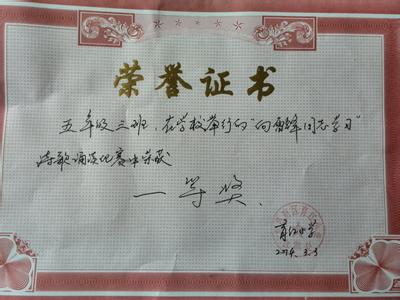 荣誉证书
五年级三班，在学校举行的"向雷锋同志学习"
诗歌诵读比赛中荣获
一等奖.
小学
2014.3.3